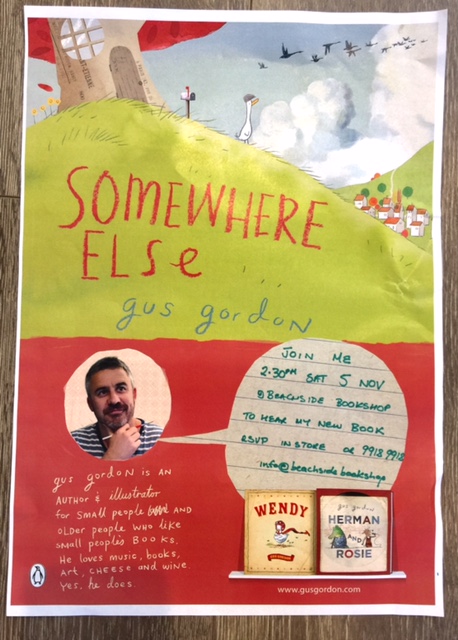 SOMEWHERE
ELSe
gus gordon
JOIN ME
2.30PM SAT 5 NOV
@ BEACHSIDE BOOKSHOP
TO HEAR MY NEW BOOK
RSVP IN STORE OR 9918 9918
info@beachsidebookshop
gus gordon is AN
AUTHOR & illustrator
for small people AND
OLDER PEOPLE WHO LIKE
SMALL PEOPLE'S BOOKS.
He LOVES MUSIC, BOOKS,
ART, CHEESE AND WINE.
YES. he does.
WENDY
gus gordon
HERMAN
AND
ROSIE
www.gusgordon.com